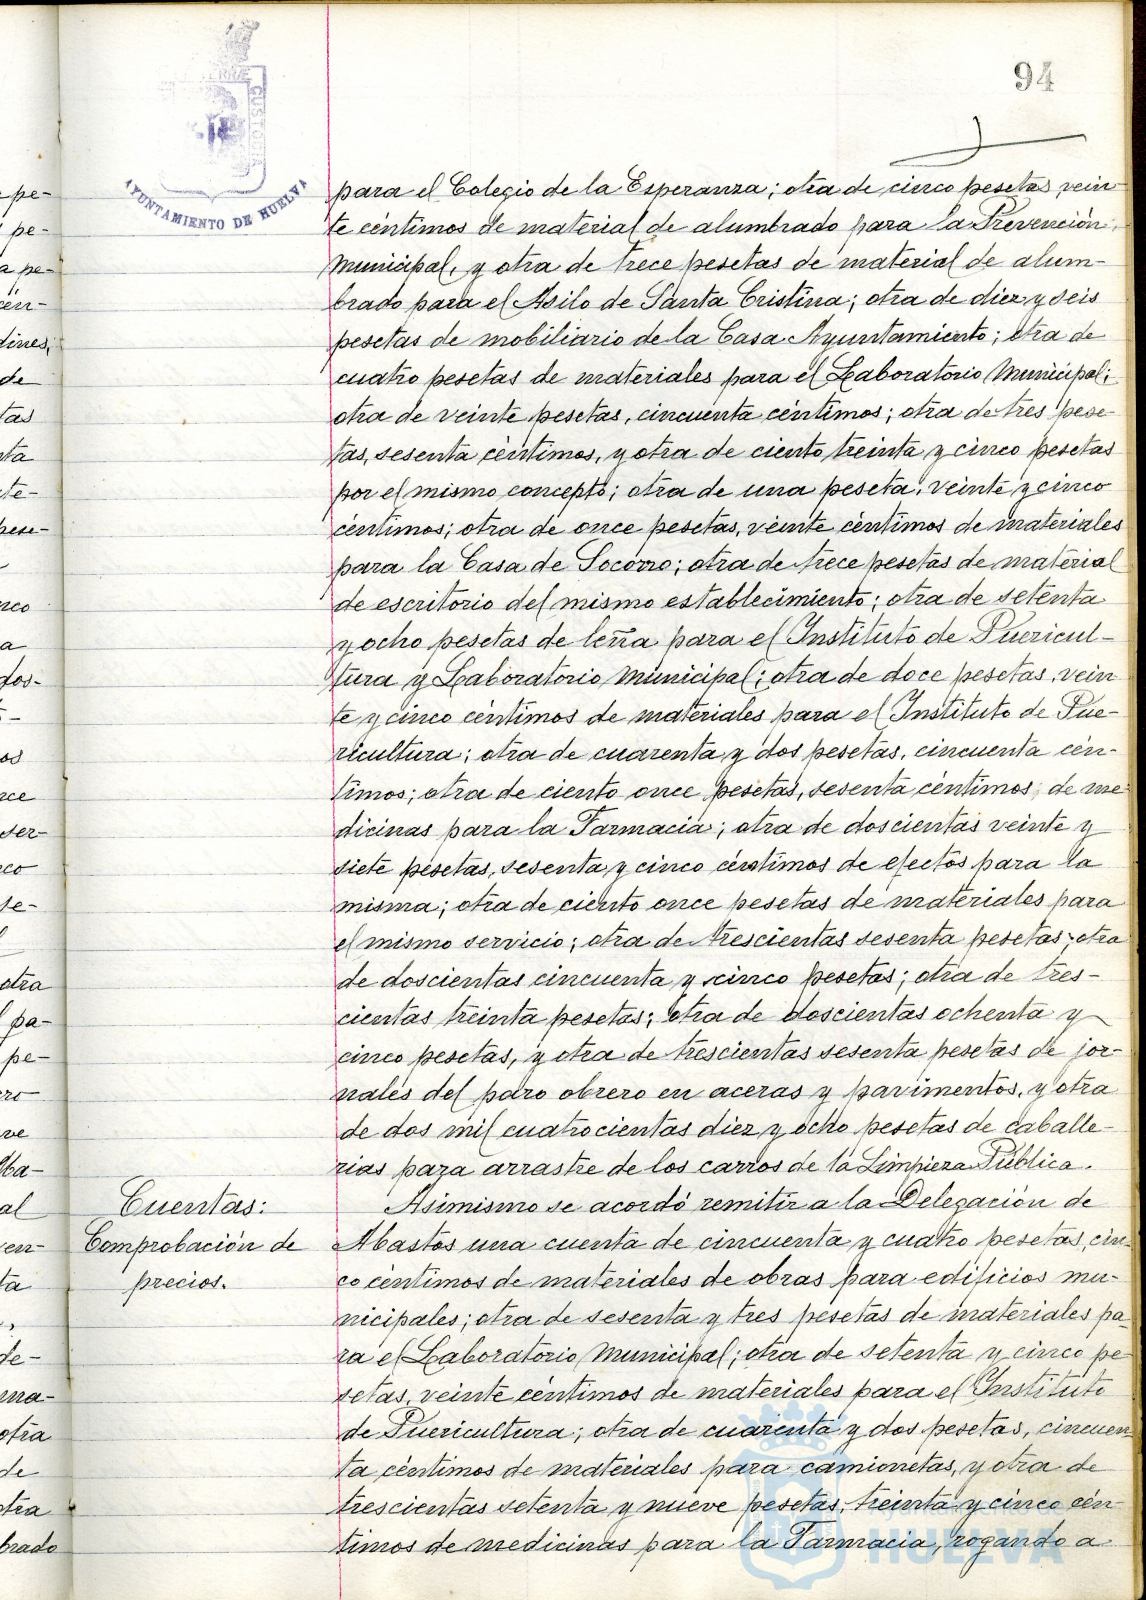 94
AYUNTAMIENTO DE HUELVA
para el Colegio de la Esperanza; otra de cinco pesetas vein-
te céntimos de material de alumbrado para la Prevención
Municipal, y otra de trece pesetas de material de alum-
brado para el Asilo de Santa Cristina; otra de diez y seis
pesetas de mobiliario de la Casa Ayuntamiento; otra de
cuatro pesetas de materiales para el Laboratorio Municipal;
otra de veinte pesetas, cincuenta céntimos; otra de tres pese-
tas, sesenta céntimos, y otra de ciento treinta y cinco pesetas
por el mismo concepto; otra de una peseta, veinte y cinco
céntimos; otra de once pesetas, veinte céntimos de materiales
para la Casa de Socorro; otra de trece pesetas de material
de escritorio del mismo establecimiento; otra de setenta
y ocho pesetas de leña para el Instituto de Puericul-
tura y Laboratorio Municipal; otra de doce pesetas, vein
te y cinco céntimos de materiales para el Instituto de Pue-
ricultura; otra de cuarenta y dos pesetas, cincuenta cén-
timos; otra de ciento once pesetas, sesenta céntimos, de me
dicinas para la Farmacia; otra de doscientas veinte y
siete pesetas, sesenta y cinco céntimos de efectos para la
misma; otra de ciento once pesetas de materiales para
el mismo servicio; otra de trescientas sesenta pesetas; otra
de doscientas cincuenta y cinco pesetas; otra de tres-
cientas treinta pesetas; otra de doscientas ochenta y
cinco pesetas, y otra de trescientas sesenta pesetas de jor-
nales del paro obrero en aceras y pavimentos, y otra
de dos mil cuatrocientas diez y ocho pesetas de caballe-
rias para arrastre de los carros de la Limpieza Pública.
Cuentas:
Comprobación de
precios.
Asimismo se acordó remitir a la Delegación de
Abastos una cuenta de cincuenta y cuatro pesetas, cin-
co céntimos de materiales de obras para edificios mu-
nicipales; otra de sesenta y tres pesetas de materiales pa-
ra el Laboratorio Municipal; otra de setenta y cinco pe
setas, veinte céntimos de materiales para el Instituto
de Puericultura; otra de cuarenta y dos pesetas, cincuen
ta céntimos de materiales para camionetas, y otra de
trescientas setenta y nueve pesetas, treinta y cinco cén
timos de medicinas para la Farmacia, rogando a
Ayuntamiento de
HUELVA